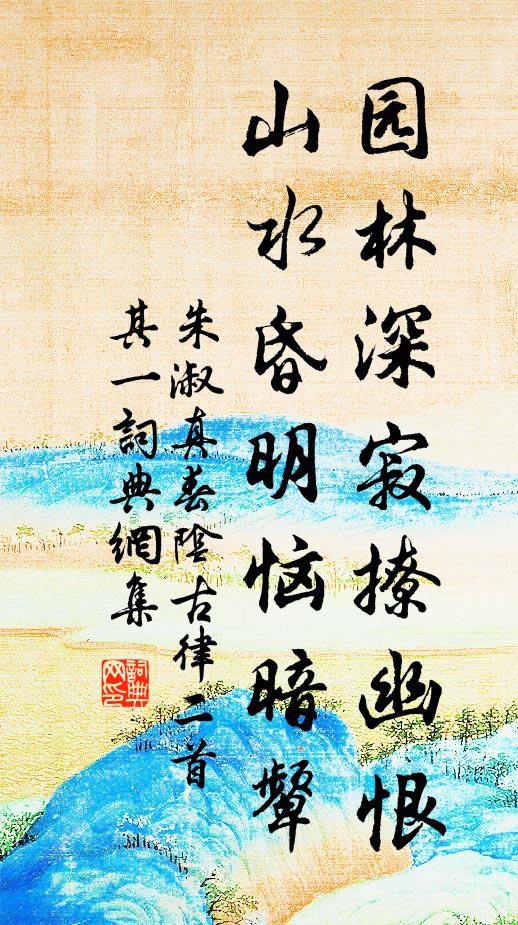 园林深寂撩幽恨
山水昏明恼暗颦
朱淑真春陰古律二首
其一詞典網集
詞典网印